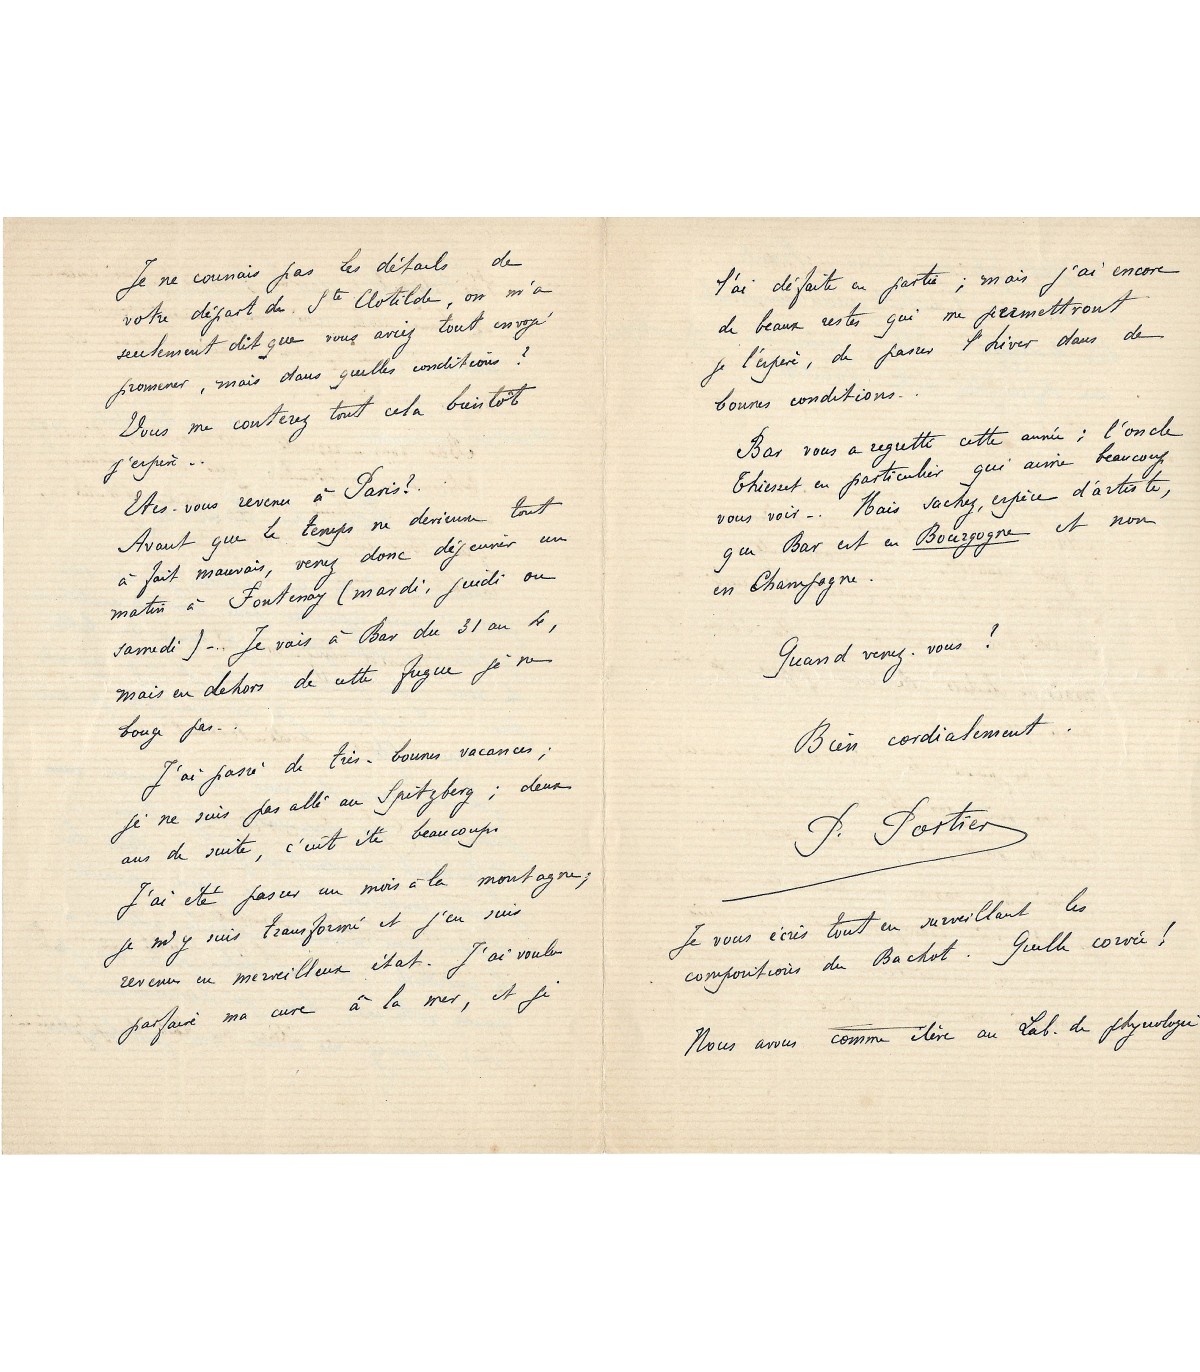 Je ne connais pas les détails de
votre départ de Ste Clotilde, on m'a
seulement dit que vous aviez tout envoyé
promener, mais dans quelles conditions ?
Vous me conterez tout cela bientôt
j'espère..
Etes-vous revenu à Paris ?
Avant que le temps ne devienne tout
à fait mauvais, venez donc déjeuner un
matin à Fontenay (mardi, jeudi ou
samedi) -.. Je vais à Bar du 31 au 4,
mais en dehors de cette fugue je ne
bouge pas...
J'ai passé de très-bonnes vacances ;
je ne suis pas allé au Spitzberg ; deux
ans de suite, c'eût été beaucoup
J'ai été passer un mois à la montagne ;
je m'y suis transformé et j'en suis
revenu en merveilleux état. J'ai voulu
parfaire ma cure à la mer, et je
l'ai défaite en partie ; mais j'ai encore
de beaux restes qui me permettront
je l'espère, de passer l'hiver dans de
bonnes conditions..
Bar vous a regretté cette année ; l'oncle
en particulier qui aime beaucoup
vous voir -.. Mais sachez, espèce d'artiste,
que Bar est en Bourgogne et non
en Champagne.
Quand venez-vous ?
Bien cordialement.
P. Portier
Je vous écris tout en surveillant les
compositions du Bachot. Quelle corvée !
Nous avons comme élève au Lab. de physiologie